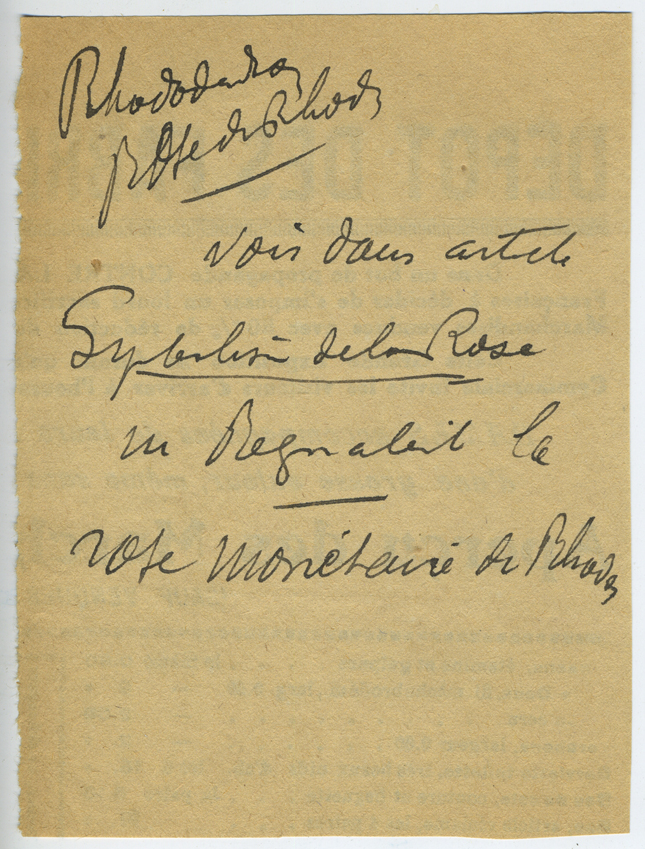 Rhododendron
Rose de Rhodes
voir dans article
Symbolisme de la Rose
in Regnabit la
rose monétaire de Rhodes